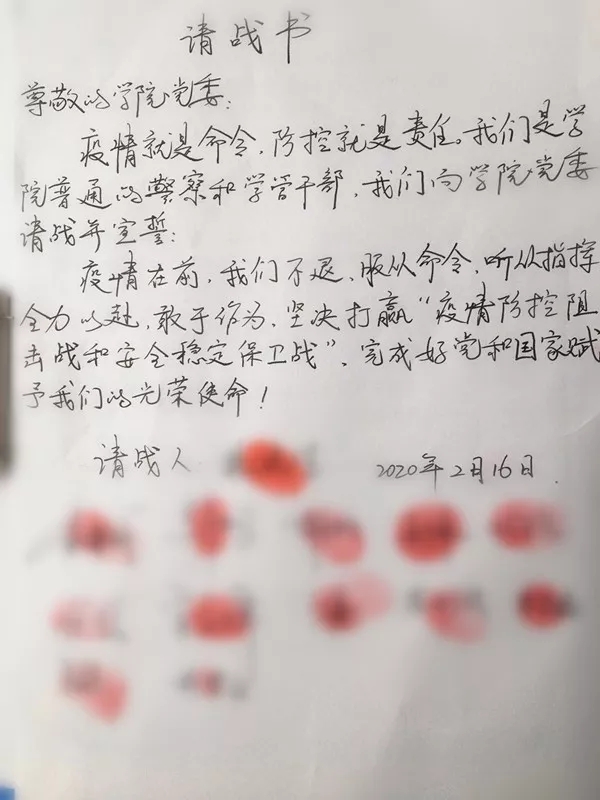 请战书
尊敬的学院党委:
疫情就是命令,防控就是责任。我们是学
院普通的警察和学管干部,我们向学院党委
请战并宣誓:
疫情在前,我们不退、服从命令、听从指挥
全力以赴,敢于作为,坚决打赢“疫情防控阻
击战和安全稳定保卫战”,完成好党和国家赋
予我们的光荣使命!
请战人
2020年2月16日.